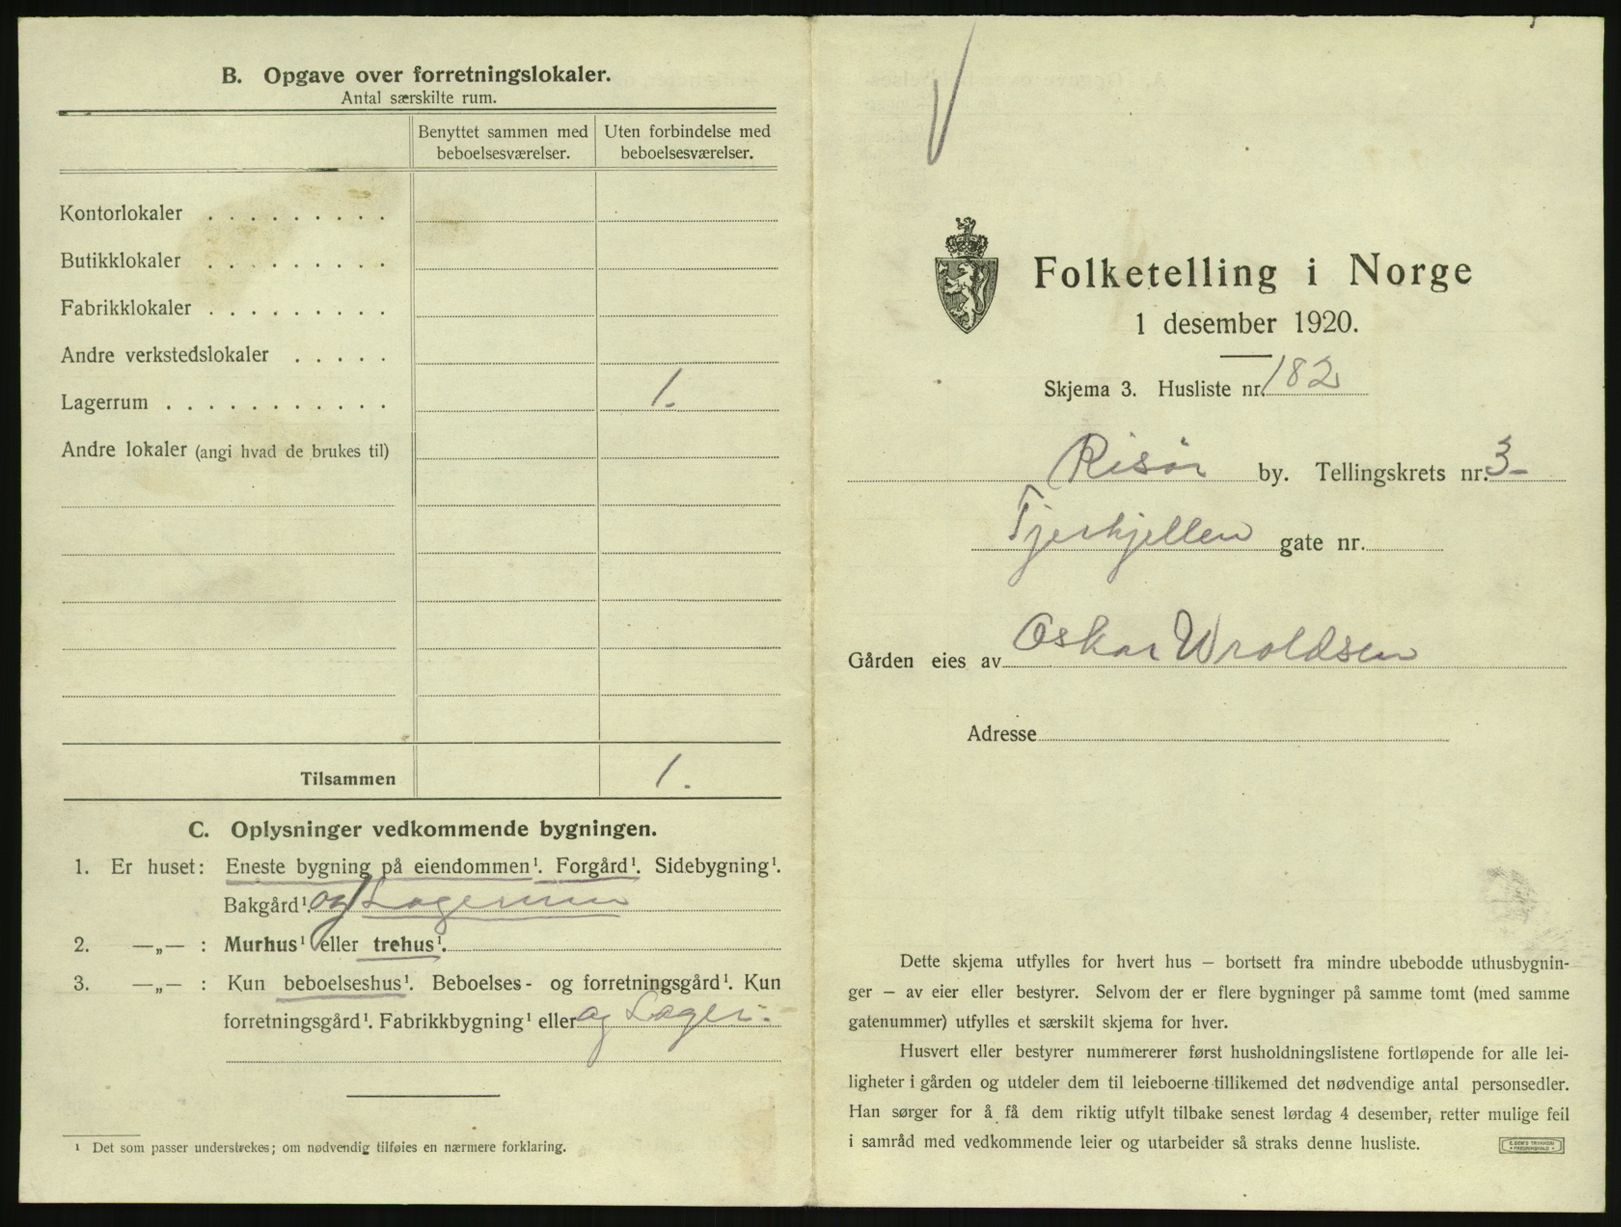 B. Opgave over forretningslokaler.
Antal særskilte rum.
Benyttet sammen med beboelsesværelser.
Uten forbindelse med beboelsesværelser.
Kontorlokaler . . . . . . . . .
Butikklokaler . . . . . . . . .
Fabrikklokaler . . . . . . . . .
Andre verkstedslokaler . . . . .
Lagerrum . . . . . . . . . . . 1.
Andre lokaler (angi hvad de brukes til)
Tilsammen 1.
C. Oplysninger vedkommende bygningen.
1. Er huset: Eneste bygning på eiendommen¹. Forgård¹. Sidebygning¹.
Bakgård¹. og Lagerrum
2. —„— : Murhus¹ eller trehus¹.
3. —„— : Kun beboelseshus¹. Beboelses- og forretningsgård¹. Kun
forretningsgård¹. Fabrikkbygning¹ eller og Lager.
¹ Det som passer understrekes; om nødvendig tilføies en nærmere forklaring.
Folketelling i Norge
1 desember 1920.
Skjema 3. Husliste nr. 182
Risör by. Tellingskrets nr. 3-
Tjerkjellen gate nr.
Gården eies av Oskar Wroldsen
Adresse
Dette skjema utfylles for hvert hus — bortsett fra mindre ubebodde uthusbygnin-
ger — av eier eller bestyrer. Selvom der er flere bygninger på samme tomt (med samme
gatenummer) utfylles et særskilt skjema for hver.
Husvert eller bestyrer nummererer først husholdningslistene fortløpende for alle lei-
ligheter i gården og utdeler dem til leieboerne tillikemed det nødvendige antal personsedler.
Han sørger for å få dem riktig utfylt tilbake senest lørdag 4 desember, retter mulige feil
i samråd med vedkommende leier og utarbeider så straks denne husliste.